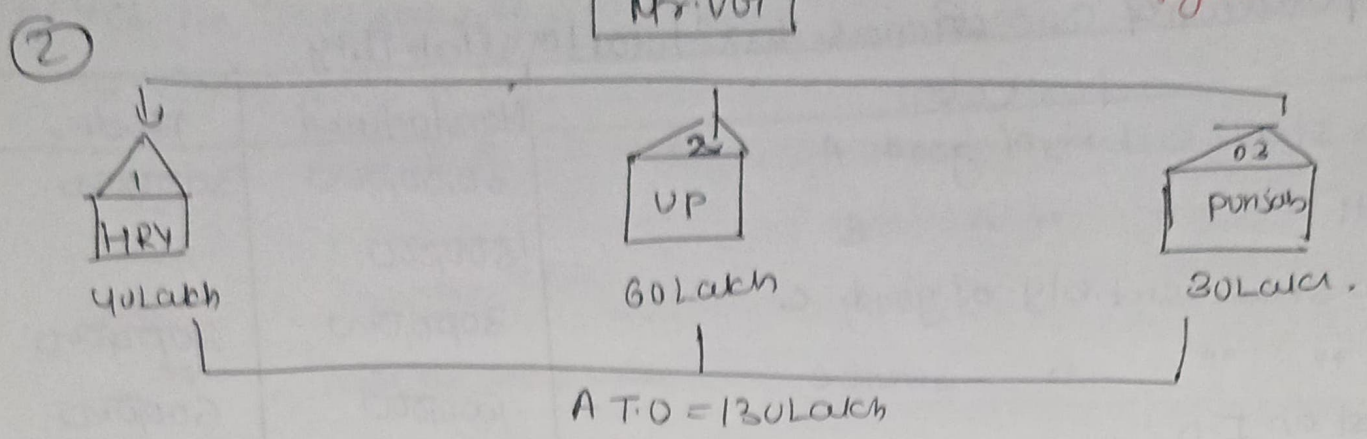 ②
1
HRY
40Lakh
2
UP
60Lakh
03
Punjab
30Lakh.
A T.O = 130Lakh